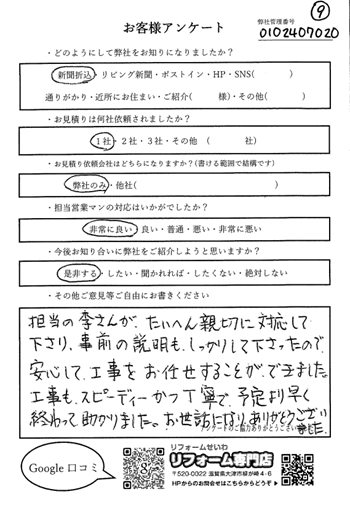 ⑨
お客様アンケート
弊社管理番号
0102407020
・どのようにして弊社をお知りになりましたか？
新聞折込・リビング新聞・ポストイン・HP・SNS(　　　)
通りがかり・近所にお住まい・ご紹介(　　　様)・その他(　　　)
・お見積りは何社依頼されましたか？
1社・2社・3社・その他（　　　社）
・お見積り依頼会社はどちらになりますか？(書ける範囲で結構です)
弊社のみ・他社(　　　)
・担当営業マンの対応はいかがでしたか？
非常に良い・良い・普通・悪い・非常に悪い
・今後お知り合いに弊社をご紹介しようと思いますか？
是非する・したい・聞かれれば・したくない・絶対しない
・その他ご意見等ご自由にお書きください
担当の李さんが、たいへん親切に対応して
下さり、事前の説明も、しっかりして下さったので、
安心して、工事をお任せすることが、できました。
工事も、スピーディーかつ丁寧で、予定より早く
終わって助かりました。お世話になりありがとうござい
ました。
アンケートのご協力ありがとうござい
Google 口コミ
リフォームせいわ
リフォーム専門店
〒520-0022 滋賀県大津市柳が崎4-6
HPからのお問合せはこちらからどうぞ▶